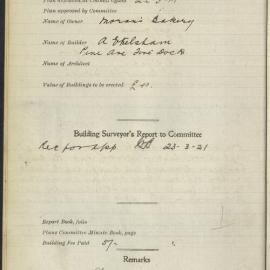 Plan approved by Committee
Name of Owner Moran's Bakery
Name of Builder A Welsham
Pine Ave Five Dock
Name of Architect
Value of Buildings to be erected £
Building Surveyor's Report to Committee
Rec for app 23-3-21
Report Book, folio
Plans Committee Minute Book, page
Building Fee Paid 5/-
Remarks